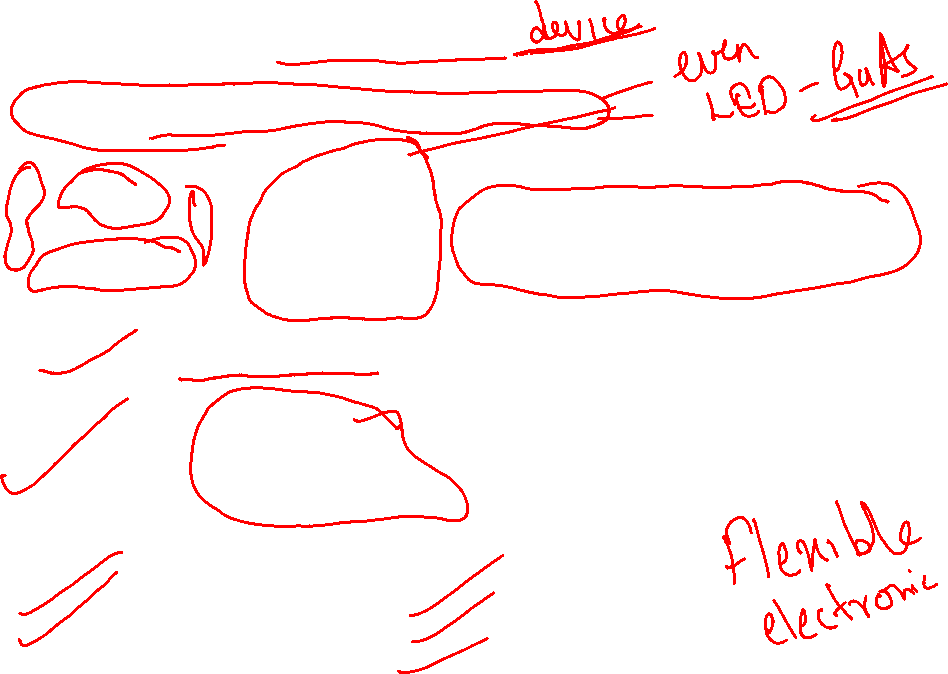 device
even
LED - GaAs
Flexible
electronic